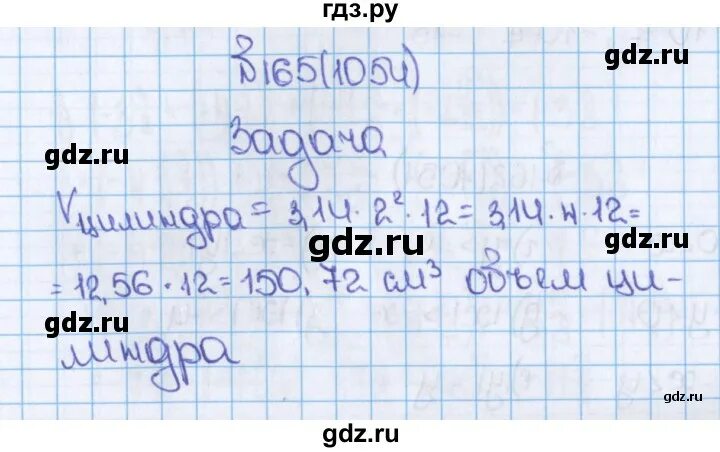 гдз.ру
gdz.ru
В165(1054)
Задача
gdz.ru
Vцилиндра = 3,14 · 2² · 12 = 3,14 · 4 · 12 =
gdz.ru gdz.ru
= 12,56 · 12 = 150,72 см³ объем ци-
линдра
gdz.ru gdz.ru
gdz.ru